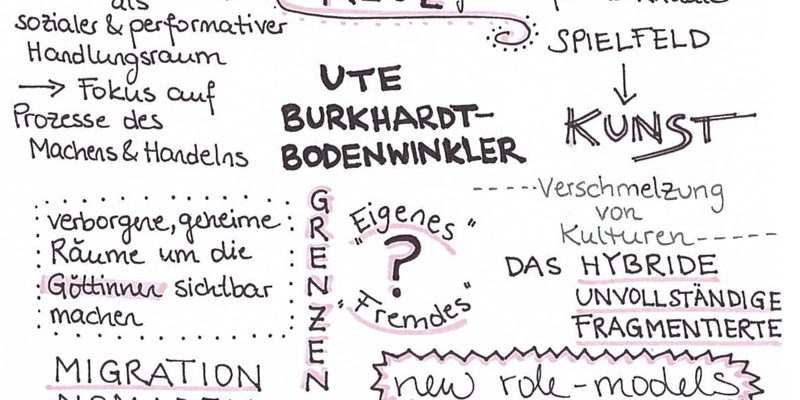 als
sozialer & performativer
Handlungsraum
→ Fokus auf
Prozesse des
Machens & Handelns
UTE
BURKHARDT-
BODENWINKLER
SPIELFELD
↓
KUNST
-----Verschmelzung
von
Kulturen-----
verborgene, geheime
Räume um die
Göttinnen sichtbar
machen
GRENZEN
„Eigenes“
?
„Fremdes“
DAS HYBRIDE
UNVOLLSTÄNDIGE
FRAGMENTIERTE
MIGRATION
new role-models